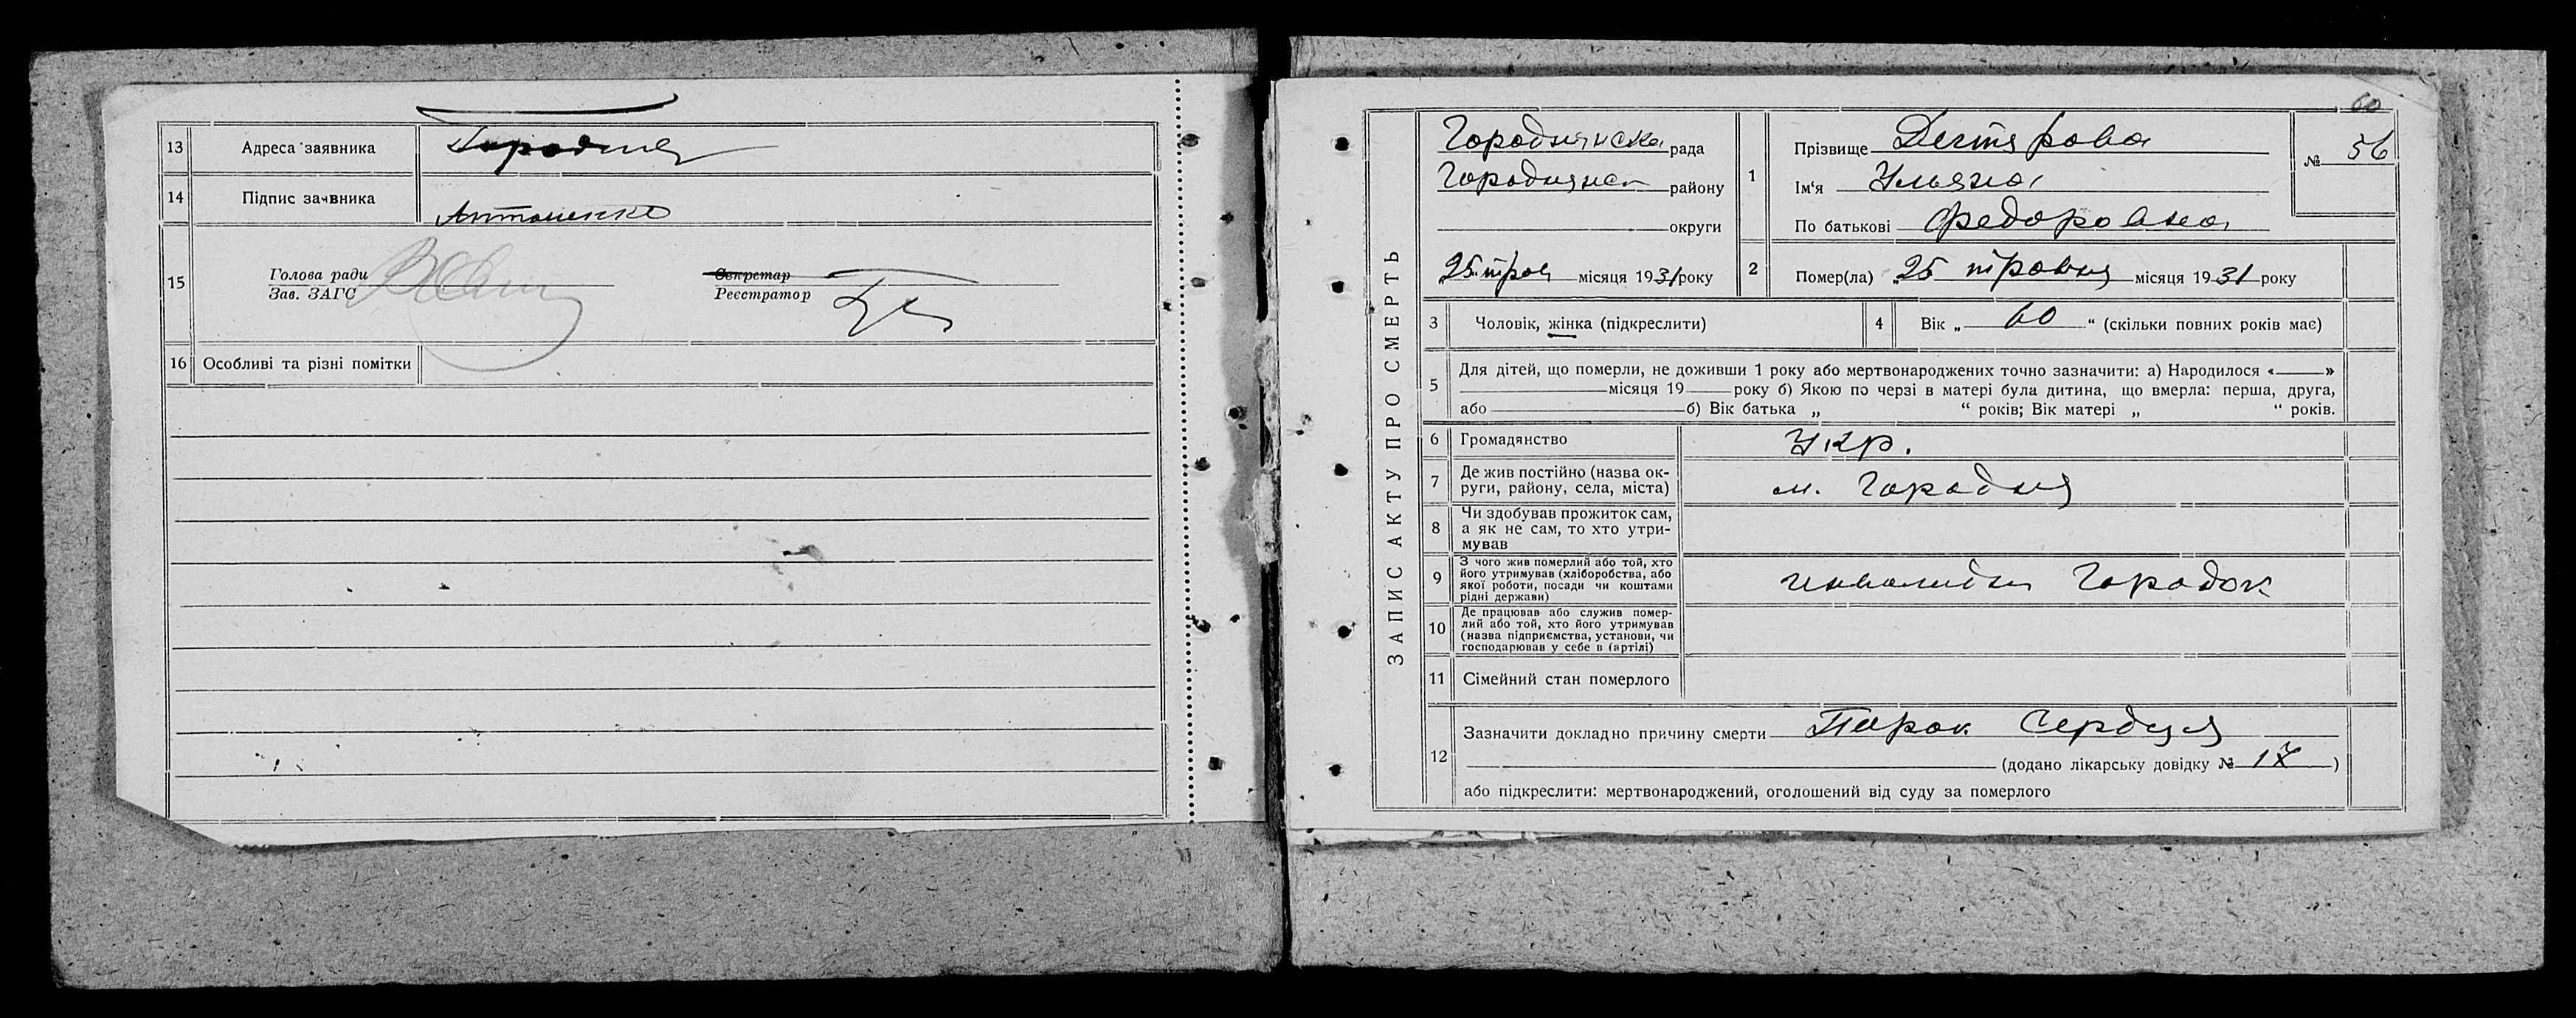 13 Адреса заявника Городня
14 Підпис заявника Антоненко
15 Голова ради
Зав. ЗАГС
Секретар
Реєстратор
16 Особливі та різні помітки
60
ЗАПИС АКТУ ПРО СМЕРТЬ
Городнянська рада
Городнянск району
округи
25 трав місяця 1931 року
№ 56
1 Прізвище Дегтярова
Ім'я Ульяна
По батькові Федоровна
2 Помер(ла) 25 травня місяця 1931 року
3 Чоловік, жінка (підкреслити)
4 Вік „ 60 “ (скільки повних років має)
5 Для дітей, що померли, не доживши 1 року або мертвонароджених точно зазначити: а) Народилося «——»
місяця 19 року б) Якою по черзі в матері була дитина, що вмерла: перша, друга,
або б) Вік батька „ “ років; Вік матері „ “ років.
6 Громадянство Укр.
7 Де жив постійно (назва ок-
руги, району, села, міста) м. Городня
8 Чи здобував прожиток сам,
а як не сам, то хто утри-
мував
9 З чого жив померлий або той, хто
його утримував (хліборобства, або
якої роботи, посади чи коштами
рідні держави) Городок
10 Де працював або служив помер-
лий або той, хто його утримував
(назва підприємства, установи, чи
господарював у себе в (артілі)
11 Сімейний стан померлого
12 Зазначити докладно причину смерти Парок Сердця
(додано лікарську довідку № 17)
або підкреслити: мертвонароджений, оголошений від суду за померлого